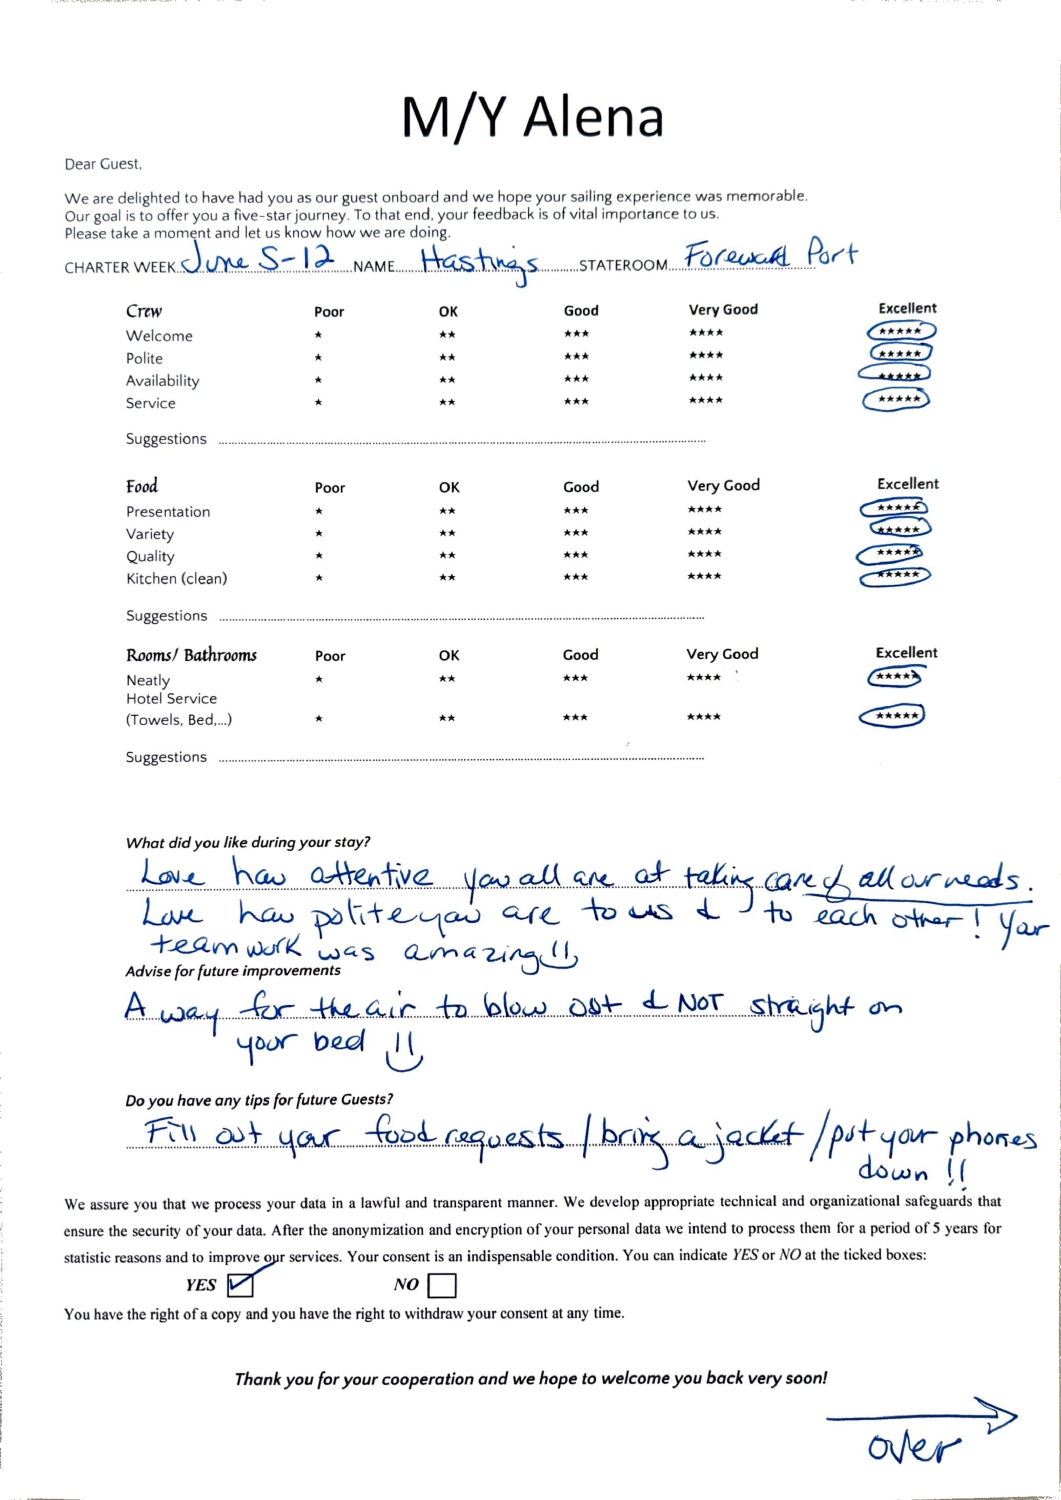 M/Y Alena
Dear Guest,
We are delighted to have had you as our guest onboard and we hope your sailing experience was memorable.
Our goal is to offer you a five-star journey. To that end, your feedback is of vital importance to us.
Please take a moment and let us know how we are doing.
CHARTER WEEK June 5-12 NAME Hastings STATEROOM Foreward Port
Crew Poor OK Good Very Good Excellent
Welcome * ** *** **** *****
Polite * ** *** **** *****
Availability * ** *** **** *****
Service * ** *** **** *****
Suggestions
Food Poor OK Good Very Good Excellent
Presentation * ** *** **** *****
Variety * ** *** **** *****
Quality * ** *** **** *****
Kitchen (clean) * ** *** **** *****
Suggestions
Rooms/ Bathrooms Poor OK Good Very Good Excellent
Neatly * ** *** **** *****
Hotel Service
(Towels, Bed,...) * ** *** **** *****
Suggestions
What did you like during your stay?
Love how attentive you all are at taking care of all our needs.
Love how polite you are to us & to each other! Your
teamwork was amazing!!
Advise for future improvements
A way for the air to blow out & NOT straight on
your bed !!
Do you have any tips for future Guests?
Fill out your food requests / bring a jacket / put your phones
down !!
We assure you that we process your data in a lawful and transparent manner. We develop appropriate technical and organizational safeguards that
ensure the security of your data. After the anonymization and encryption of your personal data we intend to process them for a period of 5 years for
statistic reasons and to improve our services. Your consent is an indispensable condition. You can indicate YES or NO at the ticked boxes:
YES NO
You have the right of a copy and you have the right to withdraw your consent at any time.
Thank you for your cooperation and we hope to welcome you back very soon!
over